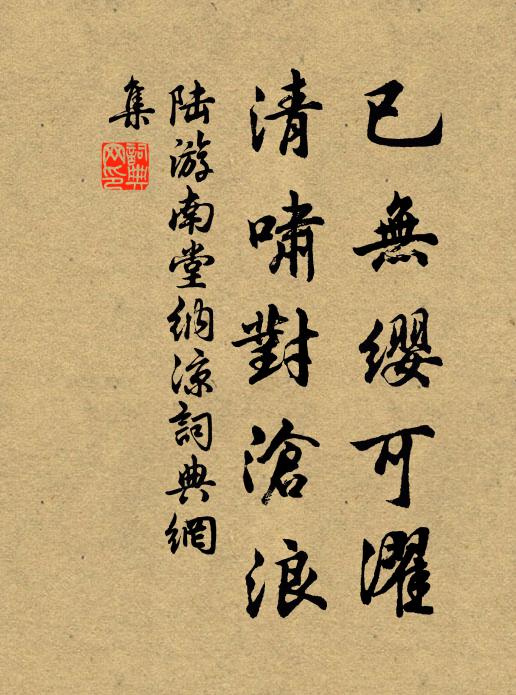 已無纓可濯
清嘯對滄浪
陆游南堂納凉詞典網
集
詞典網印